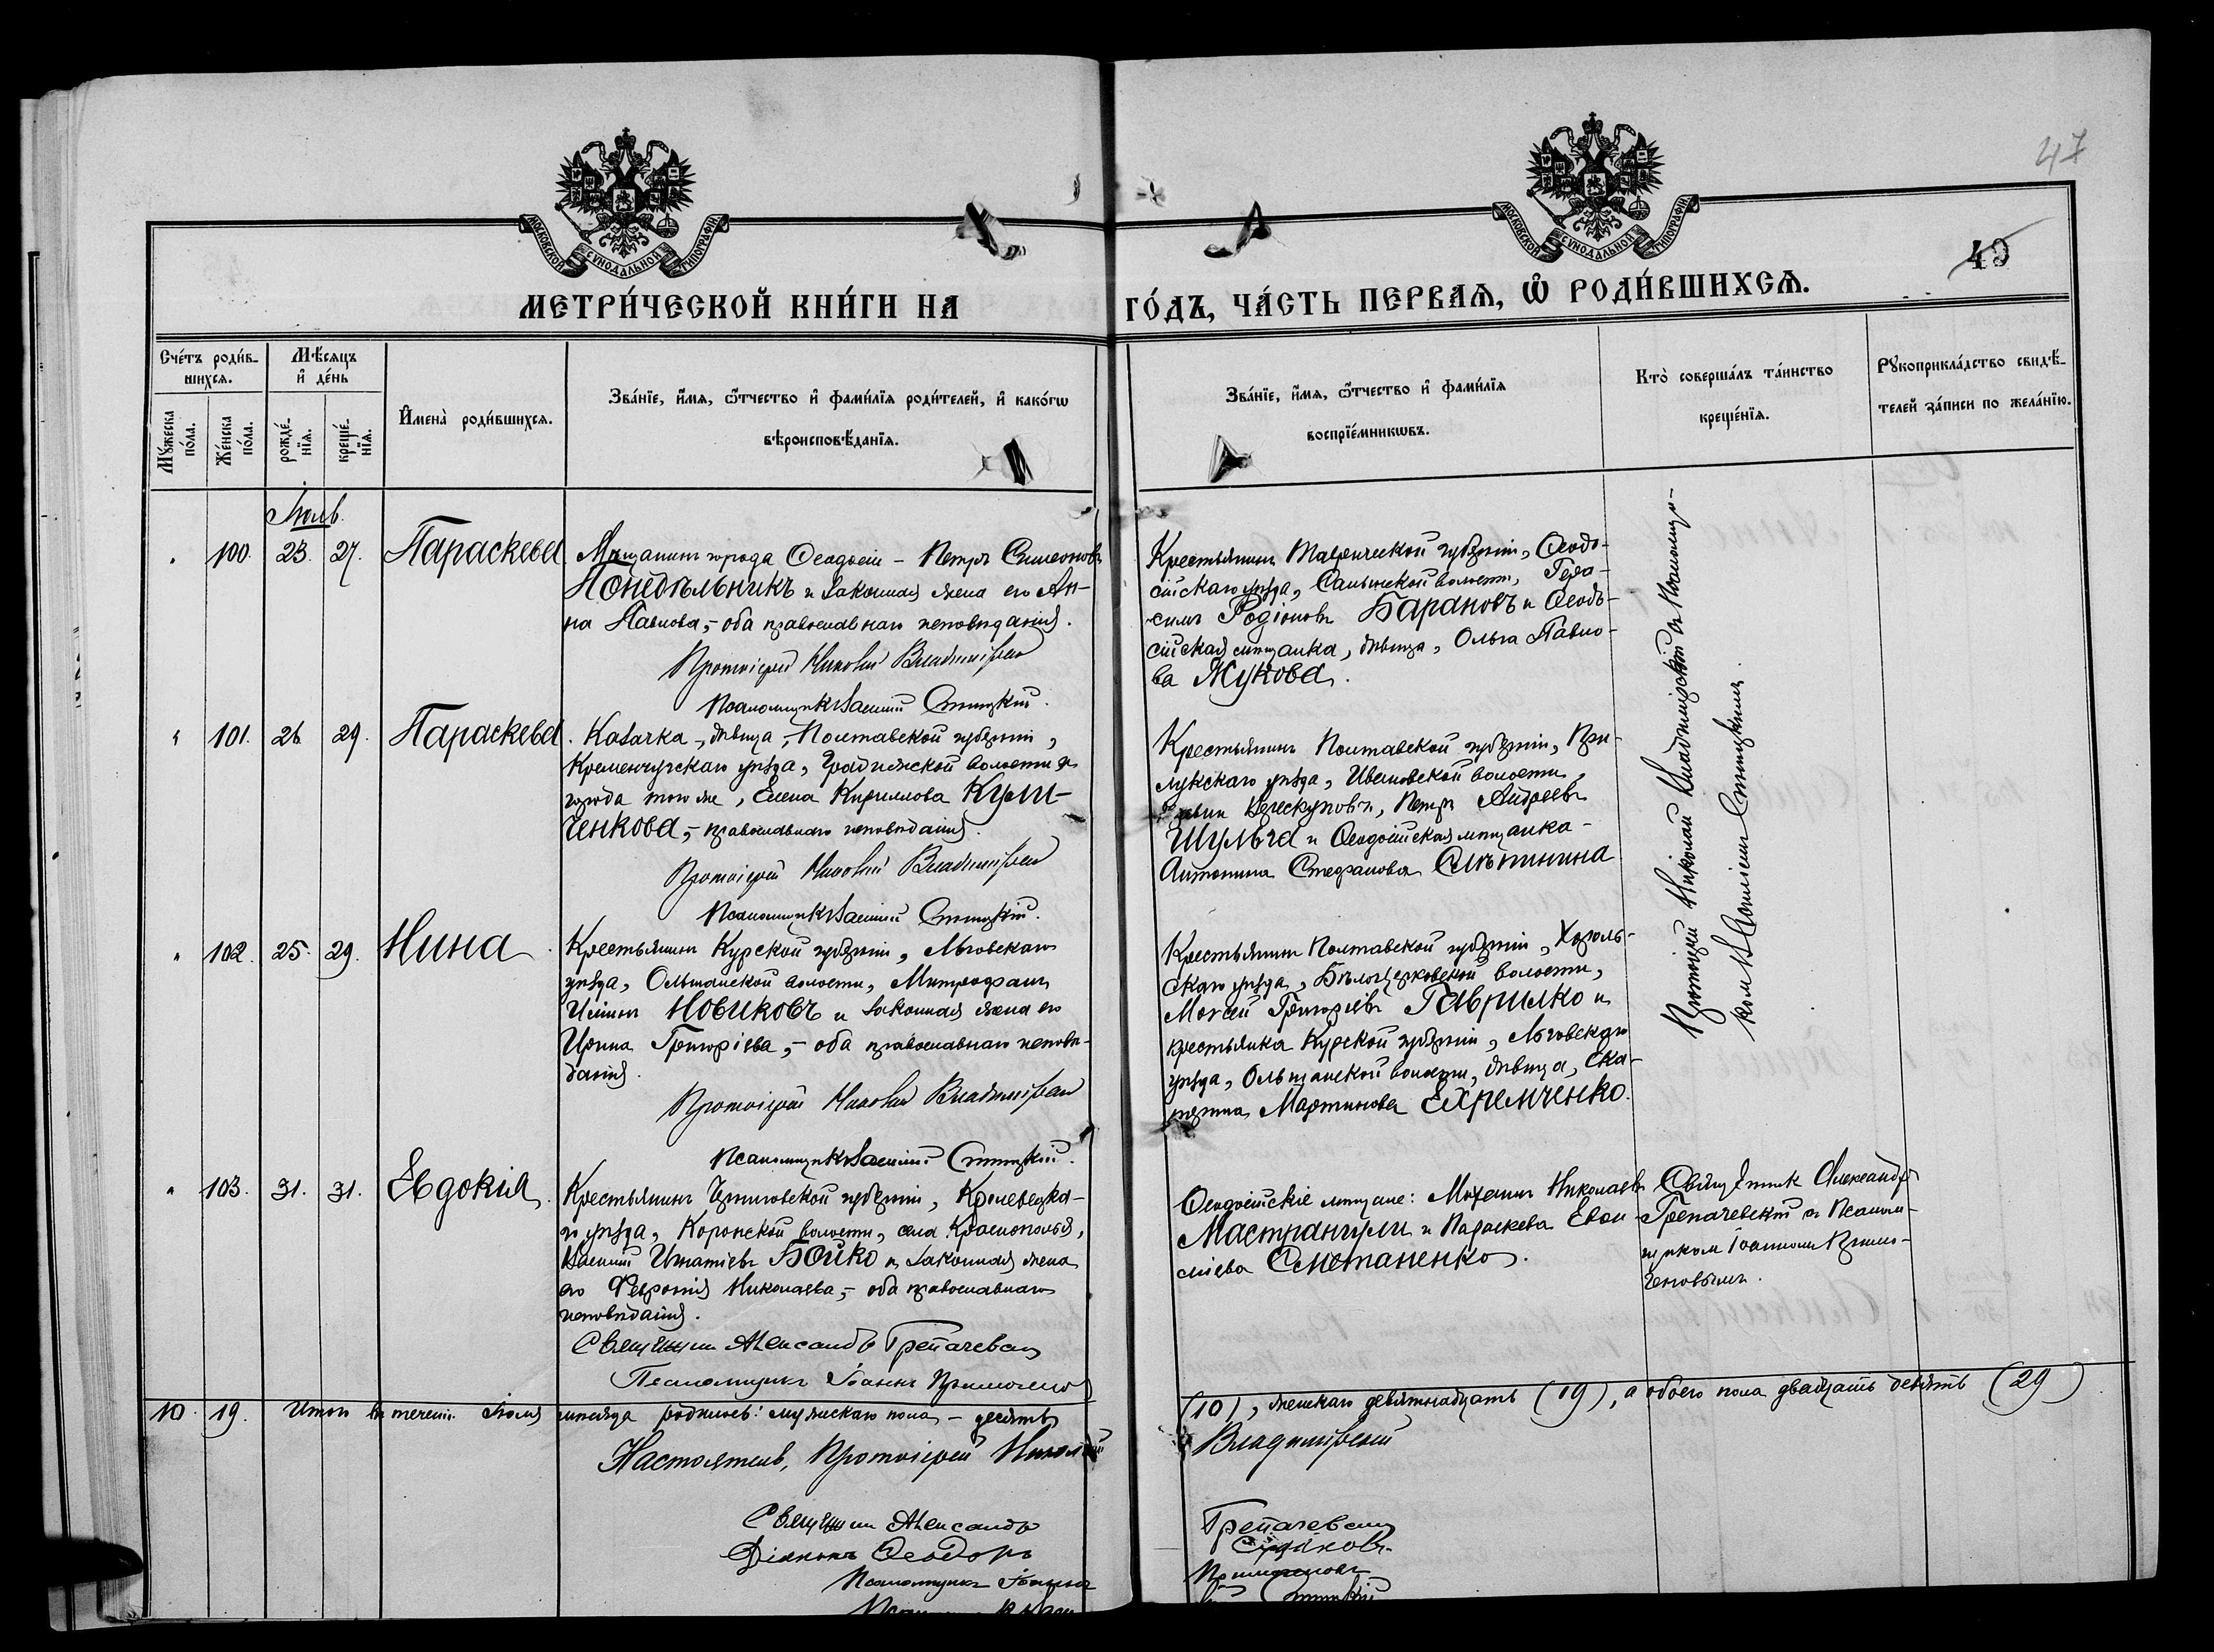 47
49
МОСКОВСКОЙ СѴНОДАЛЬНОЙ ТИПОГРАФІИ
МОСКОВСКОЙ СѴНОДАЛЬНОЙ ТИПОГРАФІИ
МЕТРИ́ЧЕСКОЙ КНИ́ГИ НА
ГО́ДЪ, ЧА́СТЬ ПЕРВАЯ, Ѡ РОДИ́ВШИХСЯ.
Сче́тъ роди́в-
шихся.
Му́жеска по́ла.
Же́нска по́ла.
Мѣ́сяцъ
и҆ де́нь
рожде́-
нїя.
креще́-
нїя.
И҆мена̀ роди́вшихся.
Зва́нїе, и҆́мя, ѻ҆́тчество и҆ фами́лїя роди́телей, и҆ како́гѡ
вѣроисповѣ́данїя.
Зва́нїе, и҆́мя, ѻ҆́тчество и҆ фами́лїя
воспрїе́мникѡвъ.
Кто̀ соверша́лъ та́инство
креще́нїя.
Рꙋкоприкла́дство свидѣ́-
телей за́писи по жела́нїю.
Іюль.
100. 23. 27. Параскева
Мѣщанинъ города Ѳеодосіи - Петръ Симеоновъ
Понедѣльникъ и законная жена его Ан-
на Павлова,- оба православнаго исповѣданія.
Протоіерей Николай Владимірскій
Псаломщикъ Василій
Крестьянинъ Таврической губерніи, Ѳеодо-
сійскаго уѣзда, волости, Гера-
симъ Родіоновъ Барановъ и Ѳеодо-
сійская мѣщанка, дѣвица, Ольга Павло-
ва Жукова.
101. 26. 29. Параскева.
Казачка, дѣвица, Полтавской губерніи,
Кременчугскаго уѣзда, Градижской волости и
города того же, Елена Кириллова Кули-
ченкова,- православнаго исповѣданія.
Протоіерей Николай Владимірскій
Псаломщикъ Василій
Крестьянинъ Полтавской губерніи, При-
лукскаго уѣзда, Ивановской волости,
Петръ Андреевъ
Шульга и Ѳеодосійская мѣщанка -
Антонина Стефанова Смѣтинина
102. 25. 29. Нина
Крестьянинъ Курской губерніи, Льговскаго
уѣзда, Ольшанской волости, Митрофанъ
Ильинъ Новиковъ и законная жена его
Ирина Григоріева,- оба православнаго исповѣ-
данія.
Протоіерей Николай Владимірскій
Псаломщикъ Василій
Крестьянинъ Полтавской губерніи, Хороль-
скаго уѣзда, Бѣлоцерковской волости,
Моисей Григоріевъ Гаврилко и
крестьянка Курской губерніи, Льговскаго
уѣзда, Ольшанской волости, дѣвица, Ека-
терина Мартинова Ехремченко.
Протоіерей Николай Владимірскій съ Псаломщи-
комъ Василіемъ
103. 31. 31. Евдокія.
Крестьянинъ Черниговской губерніи, Кролевецка-
го уѣзда, Коропской волости, села Краснополья,
Василій Игнатіевъ Бойко и законная жена
его Февронія Николаева,- оба православнаго
исповѣданія.
Священникъ Александръ Грепачевскій
Псаломщикъ Іоаннъ
Ѳеодосійскіе мѣщане: Михаилъ Николаевъ
Мастрангули и Параскева Евои-
лліева Сметаненко.
Священникъ Александръ
Грепачевскій съ Псалом-
щикомъ Іоанномъ
10. 19. Итого въ теченіи Іюля мѣсяца родилось: мужскаго пола - десять
(10), женскаго девятнадцать (19), а обоего пола двадцать девять (29)
Настоятель, Протоіерей Николай
Владимірскій
Священникъ Александръ
Грепачевскій
Діаконъ Ѳеодоръ
Псаломщикъ Іоаннъ